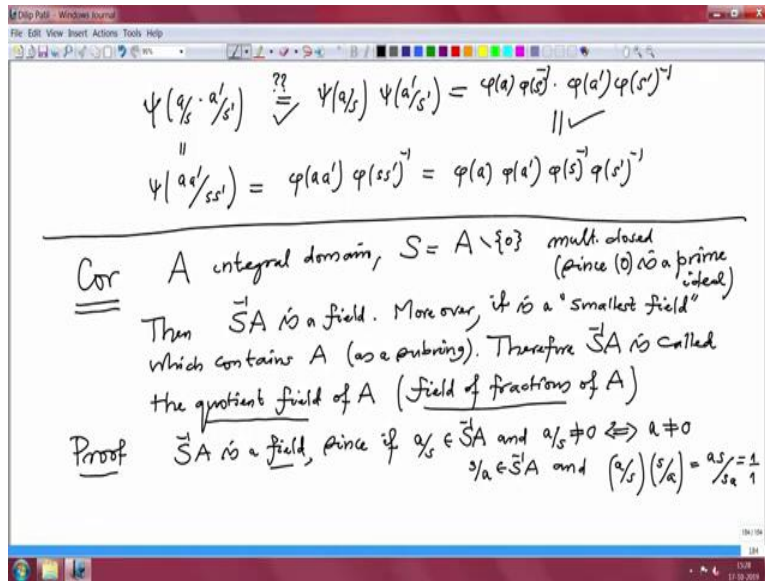 Dilip Patil - Windows Journal
File Edit View Insert Actions Tools Help
ψ(a/s · a'/s') ?? = ✓ ψ(a/s) ψ(a'/s') = φ(a) φ(s)⁻¹ · φ(a') φ(s')⁻¹
|| || ✓
ψ(aa'/ss') = φ(aa') φ(ss')⁻¹ = φ(a) φ(a') φ(s)⁻¹ φ(s')⁻¹
Cor A integral domain, S = A \ {0} mult. closed
(since (0) is a prime
ideal)
Then S⁻¹A is a field. Moreover, it is a "smallest field"
which contains A (as a subring). Therefore S⁻¹A is called
the quotient field of A (field of fractions of A)
Proof S⁻¹A is a field, since if a/s ∈ S⁻¹A and a/s ≠ 0 ⟺ a ≠ 0
s/a ∈ S⁻¹A and (a/s)(s/a) = as/sa = 1/1
184 / 184
184
15:28
17-10-2019